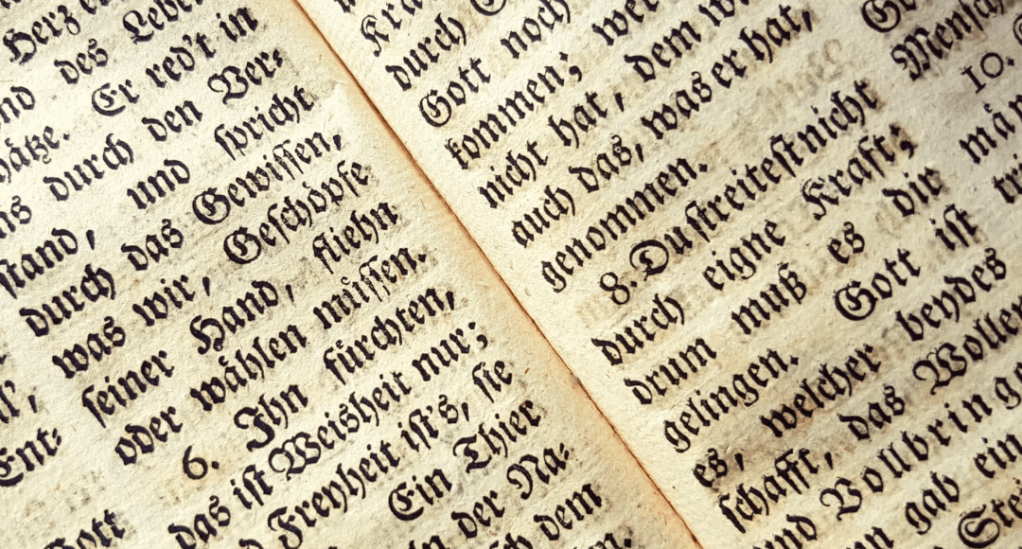 Herz
des Leben
und
Er red't in
schätze.
durch den Ver-
und spricht
stand,
durch das Gewissen,
was wir, Geschöpfe
seiner Hand, fliehn
oder wählen müssen.
Ent-
6. Ihn fürchten,
das ist Weisheit nur;
Freyheit ist's, sie
Ein Thier
der Na-
dem
Gott
durch
Gott noch
kommen; wer
nicht hat, dem
auch das, was er hat,
genommen.
8. Du streitest nicht
durch eigne Kraft;
drum muß es dir
gelingen. Gott ist
es, welcher beydes
schafft, das Wollen
und Vollbringen
gab ein
Mensch
10.